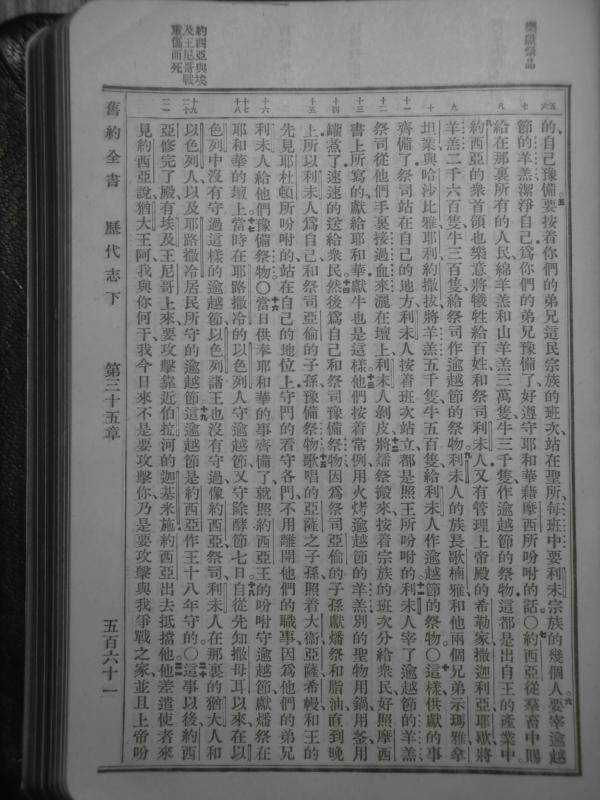 樂獻祭品
約西亞與埃
及王尼哥戰
重傷而死
五
六
七
八
九
十
十一
十二
十三
十四
十五
十六
十七
十八
十九
二十
二一
的自己豫備要按着你們的弟兄這民宗族的班次站在聖所每班中要利未宗族的幾個人要宰逾越
節的羊羔潔淨自己爲你們的弟兄豫備了好遵守耶和華藉摩西所吩咐的話○約西亞從羣畜中賜
給在那裏所有的人民綿羊羔和山羊羔三萬隻牛三千隻作逾越節的祭物這都是出自王的產業中
約西亞的衆首領也樂意將犧牲給百姓和祭司利未人又有管理上帝殿的希勒家撒迦利亞耶歇將
羊羔二千六百隻牛三百隻給祭司作逾越節的祭物利未人的族長歌楠雅和他兩個兄弟示瑪雅拿
坦業與哈沙比雅耶利約撒拔將羊羔五千隻牛五百隻給利未人作逾越節的祭物○這樣供獻的事
齊備了祭司站在自己的地方利未人按着班次站立都是照王所吩咐的利未人宰了逾越節的羊羔
祭司從他們手裏接過血來灑在壇上利未人剝皮將燔祭搬來按着宗族的班次分給衆民好照摩西
書上所寫的獻給耶和華獻牛也是這樣他們按着常例用火烤逾越節的羊羔別的聖物用鍋用釜用
罐煑了速速的送給衆民然後爲自己和祭司豫備祭物因爲祭司亞倫的子孫獻燔祭和脂油直到晚
上所以利未人爲自己和祭司亞倫的子孫豫備祭物歌唱的亞薩之子孫照着大衞亞薩希幔和王的
先見耶杜頓所吩咐的站在自己的地位上守門的看守各門不用離開他們的職事因爲他們的弟兄
利未人給他們豫備祭物○當日供奉耶和華的事齊備了就照約西亞王的吩咐守逾越節獻燔祭在
耶和華的壇上當時在耶路撒冷的以色列人守逾越節又守除酵節七日自從先知撒母耳以來在以
色列中沒有守過這樣的逾越節以色列諸王也沒有守過像約西亞祭司利未人在那裏的猶大人和
以色列人以及耶路撒冷居民所守的逾越節這逾越節是約西亞作王十八年守的○這事以後約西
亞修完了殿有埃及王尼哥上來要攻擊靠近伯拉河的迦基米施約西亞出去抵擋他他差遣使者來
見約西亞說猶大王阿我與你何干我今日來不是要攻擊你乃是要攻擊與我爭戰之家並且上帝吩
舊約全書　歷代志下　第三十五章　五百六十一